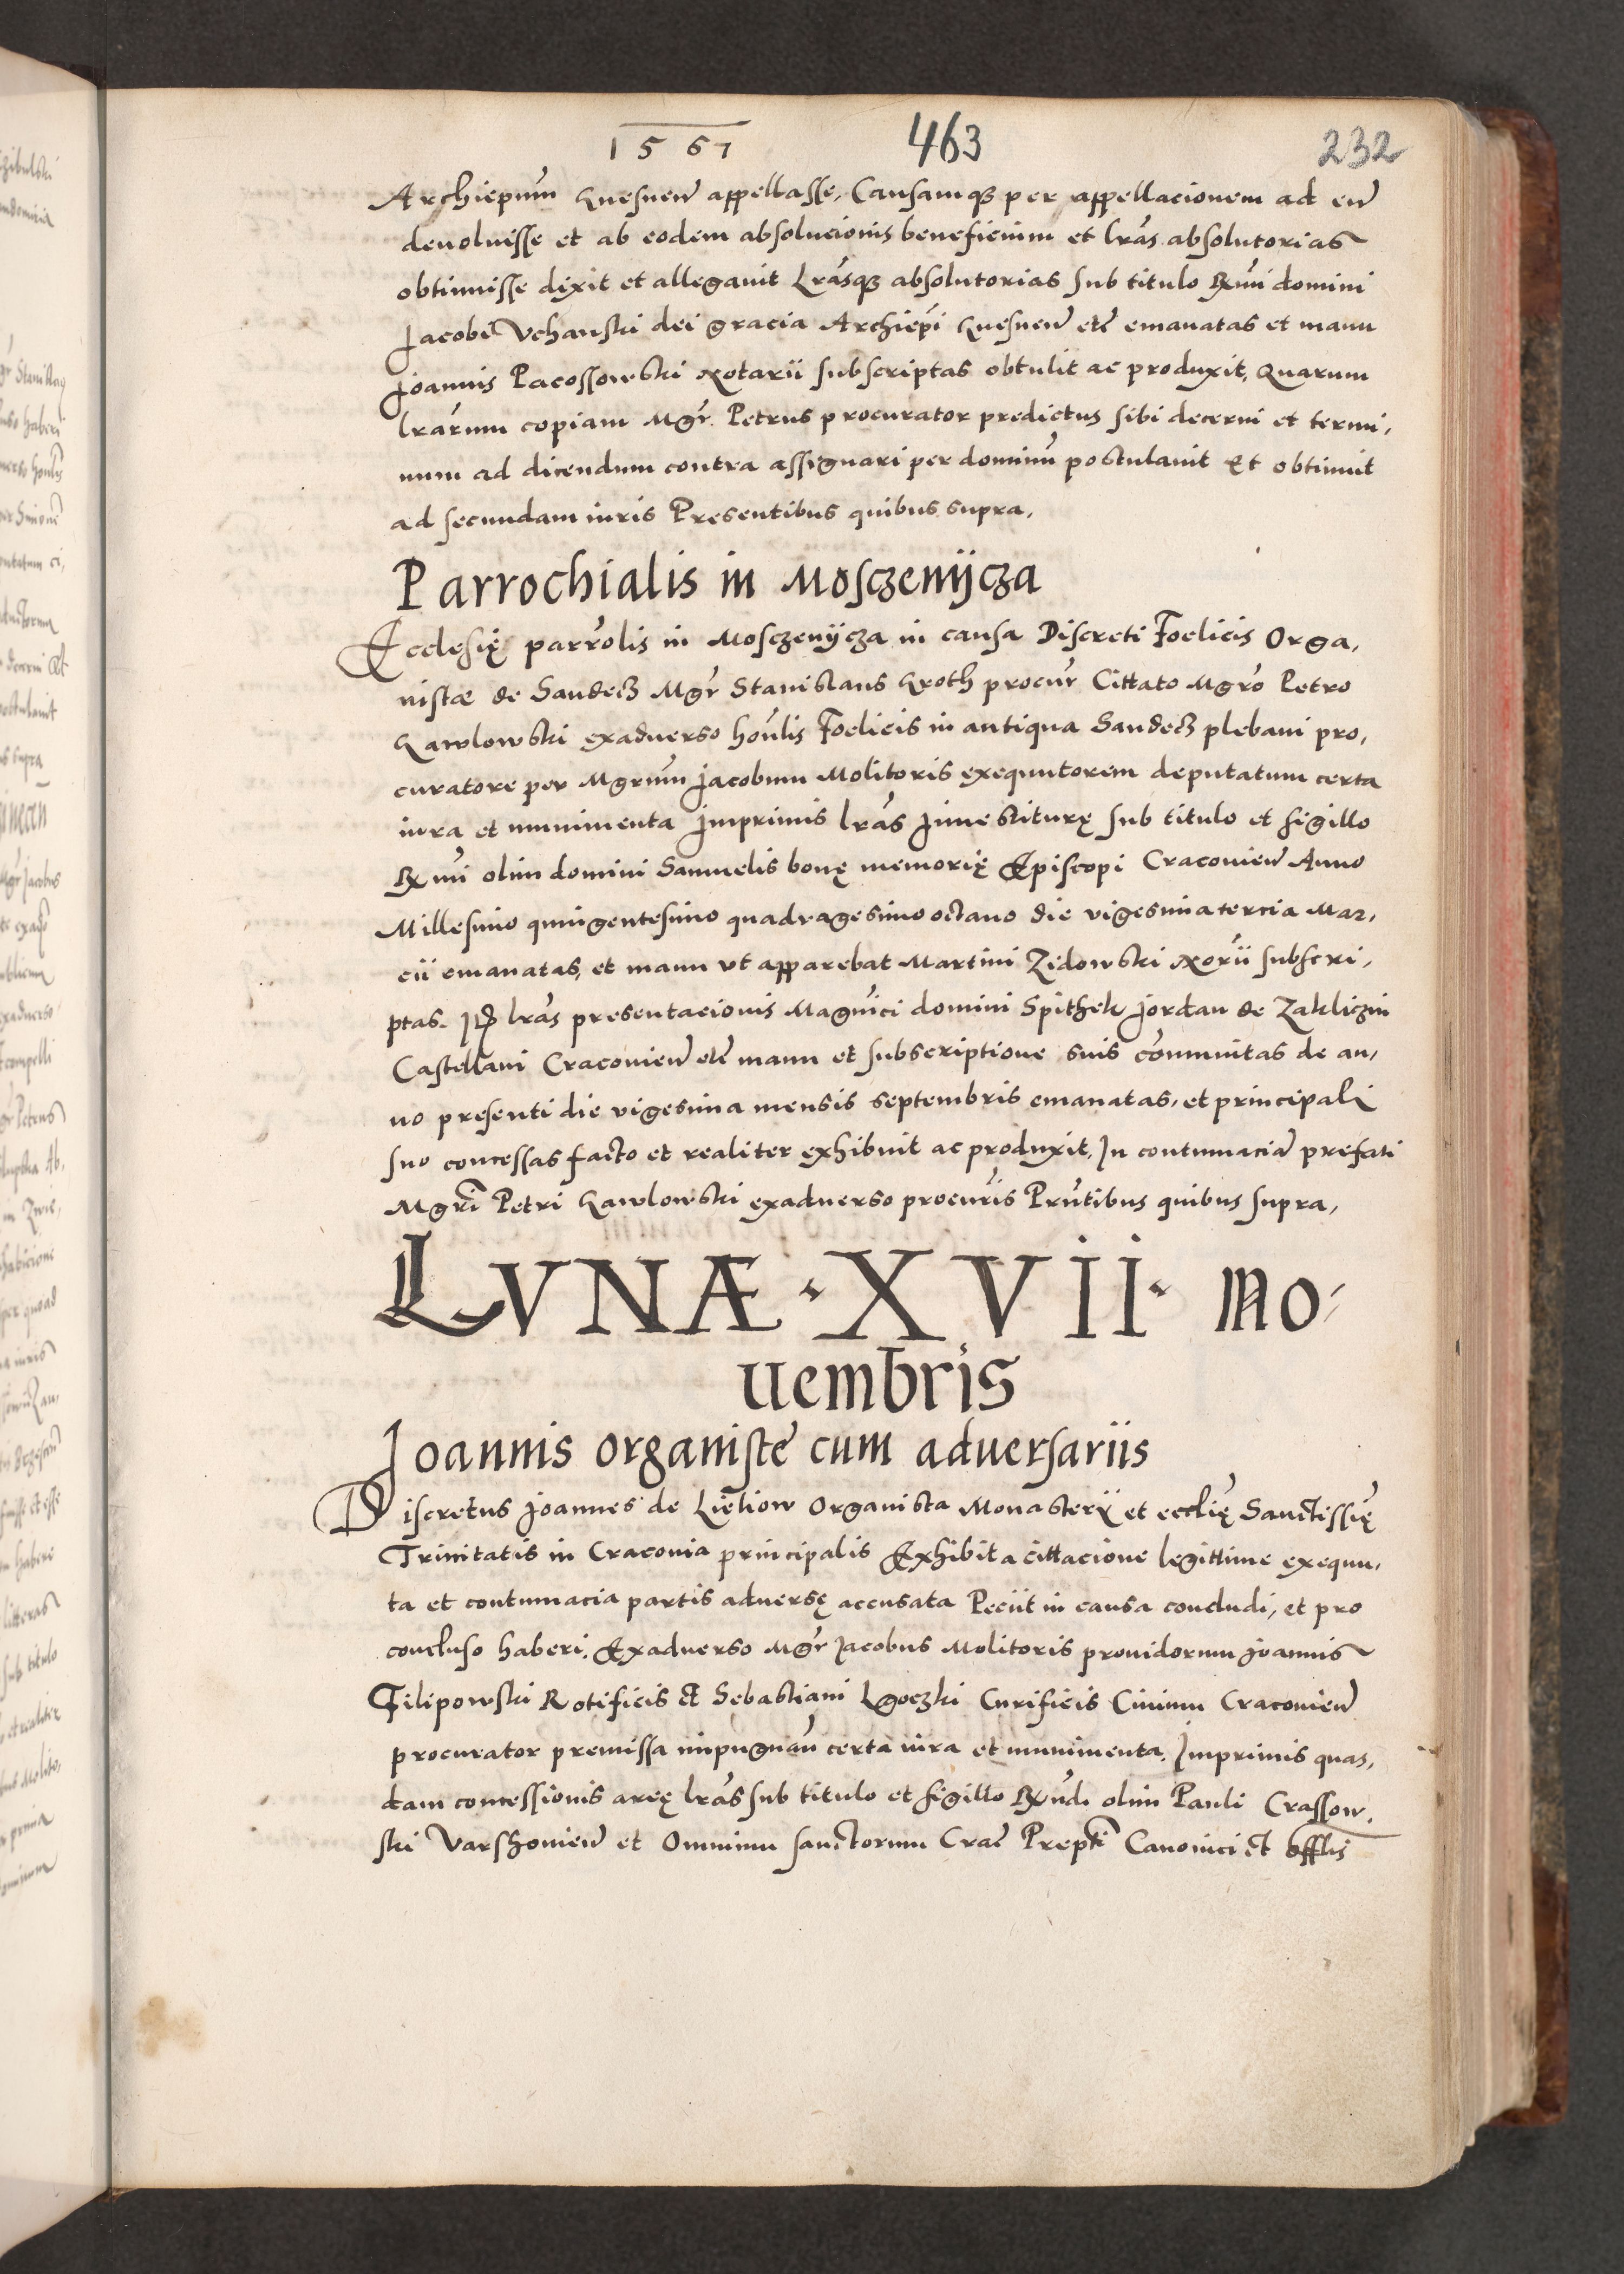 1567 463 232
Archiepum Gnesnen appellasse, Causamq3 per appellacionem ad eu
deuoluisse et ab eodem absolucionis beneficium et lras absolutorias
obtinuisse dixit et allegauit Lrasq3 absolutorias sub titulo Rxmi domini
Jacobi Vchanski dei gracia Archiepi Gnesnen etc emanatas et manu
Joannis Pacossowski Notarii subscriptas obtulit ac produxit, Quarum
lrarum copiam Mgr Petrus procurator predictus sibi decerni et termi,
num ad dicendum contra assignari per dominu postulauit Et obtinuit
ad secundam iuris Presentibus quibus supra,
Parrochialis in Mosczenijcza
Ecclesię parrolis in Mosczenijcza in causa Discreti Foelicis Orga,
nistæ de Sandecz Mgr Stanislaus Groth procur Cittato Mgro Petro
Gawlowski exaduerso honlis Foelicis in antiqua Sandecz plebani pro,
curatore per Mgrum Jacobum Molitoris exequutorem deputatum certa
iura et munimenta Jmprimis lras Jnuestiturę sub titulo et sigillo
Rxmi olim domini Samuelis bonę memorię Episcopi Cracouien Anno
Millesimo quingentesimo quadragesimo octauo die vigesima tercia Mar,
cii emanatas, et manu vt apparebat Martini Zidowski Norii subscri,
ptas. Jt lras presentacionis Magnici domini Spithek Jordan de Zakliczin
Castellani Cracouien etc manu et subscriptione suis communitas de an,
no presenti die vigesima mensis septembris emanatas, et principali
suo concessas facto et realiter exhibuit ac produxit, In contumacia prefati
Mgri Petri Gawlowski exaduerso procuris Prntibus quibus supra,
LVNÆ · XVII · No,
uembris
Joannis organiste cum aduersariis
Discretus Joannes de Organista Monasterii et ecclię Sanctissię
Trinitatis in Cracouia principalis Exhibita cittacione legittime exequu,
ta et contumacia partis aduersę accusata Peciit in causa concludi, et pro
concluso haberi. Exaduerso Mgr Jacobus Molitoris prouidorum Joannis
Filipowski Rotificis et Sebastiani Lgoczki Curificis Ciuium Cracouien
procurator premissa impugnan certa iura et munimenta. Jmprimis quas,
dam concessionis areę lras sub titulo et sigillo Rxndi olim Pauli Crassow,
ski Varshouien et Omnium sanctorum Crac Prepti Canonici et offlis